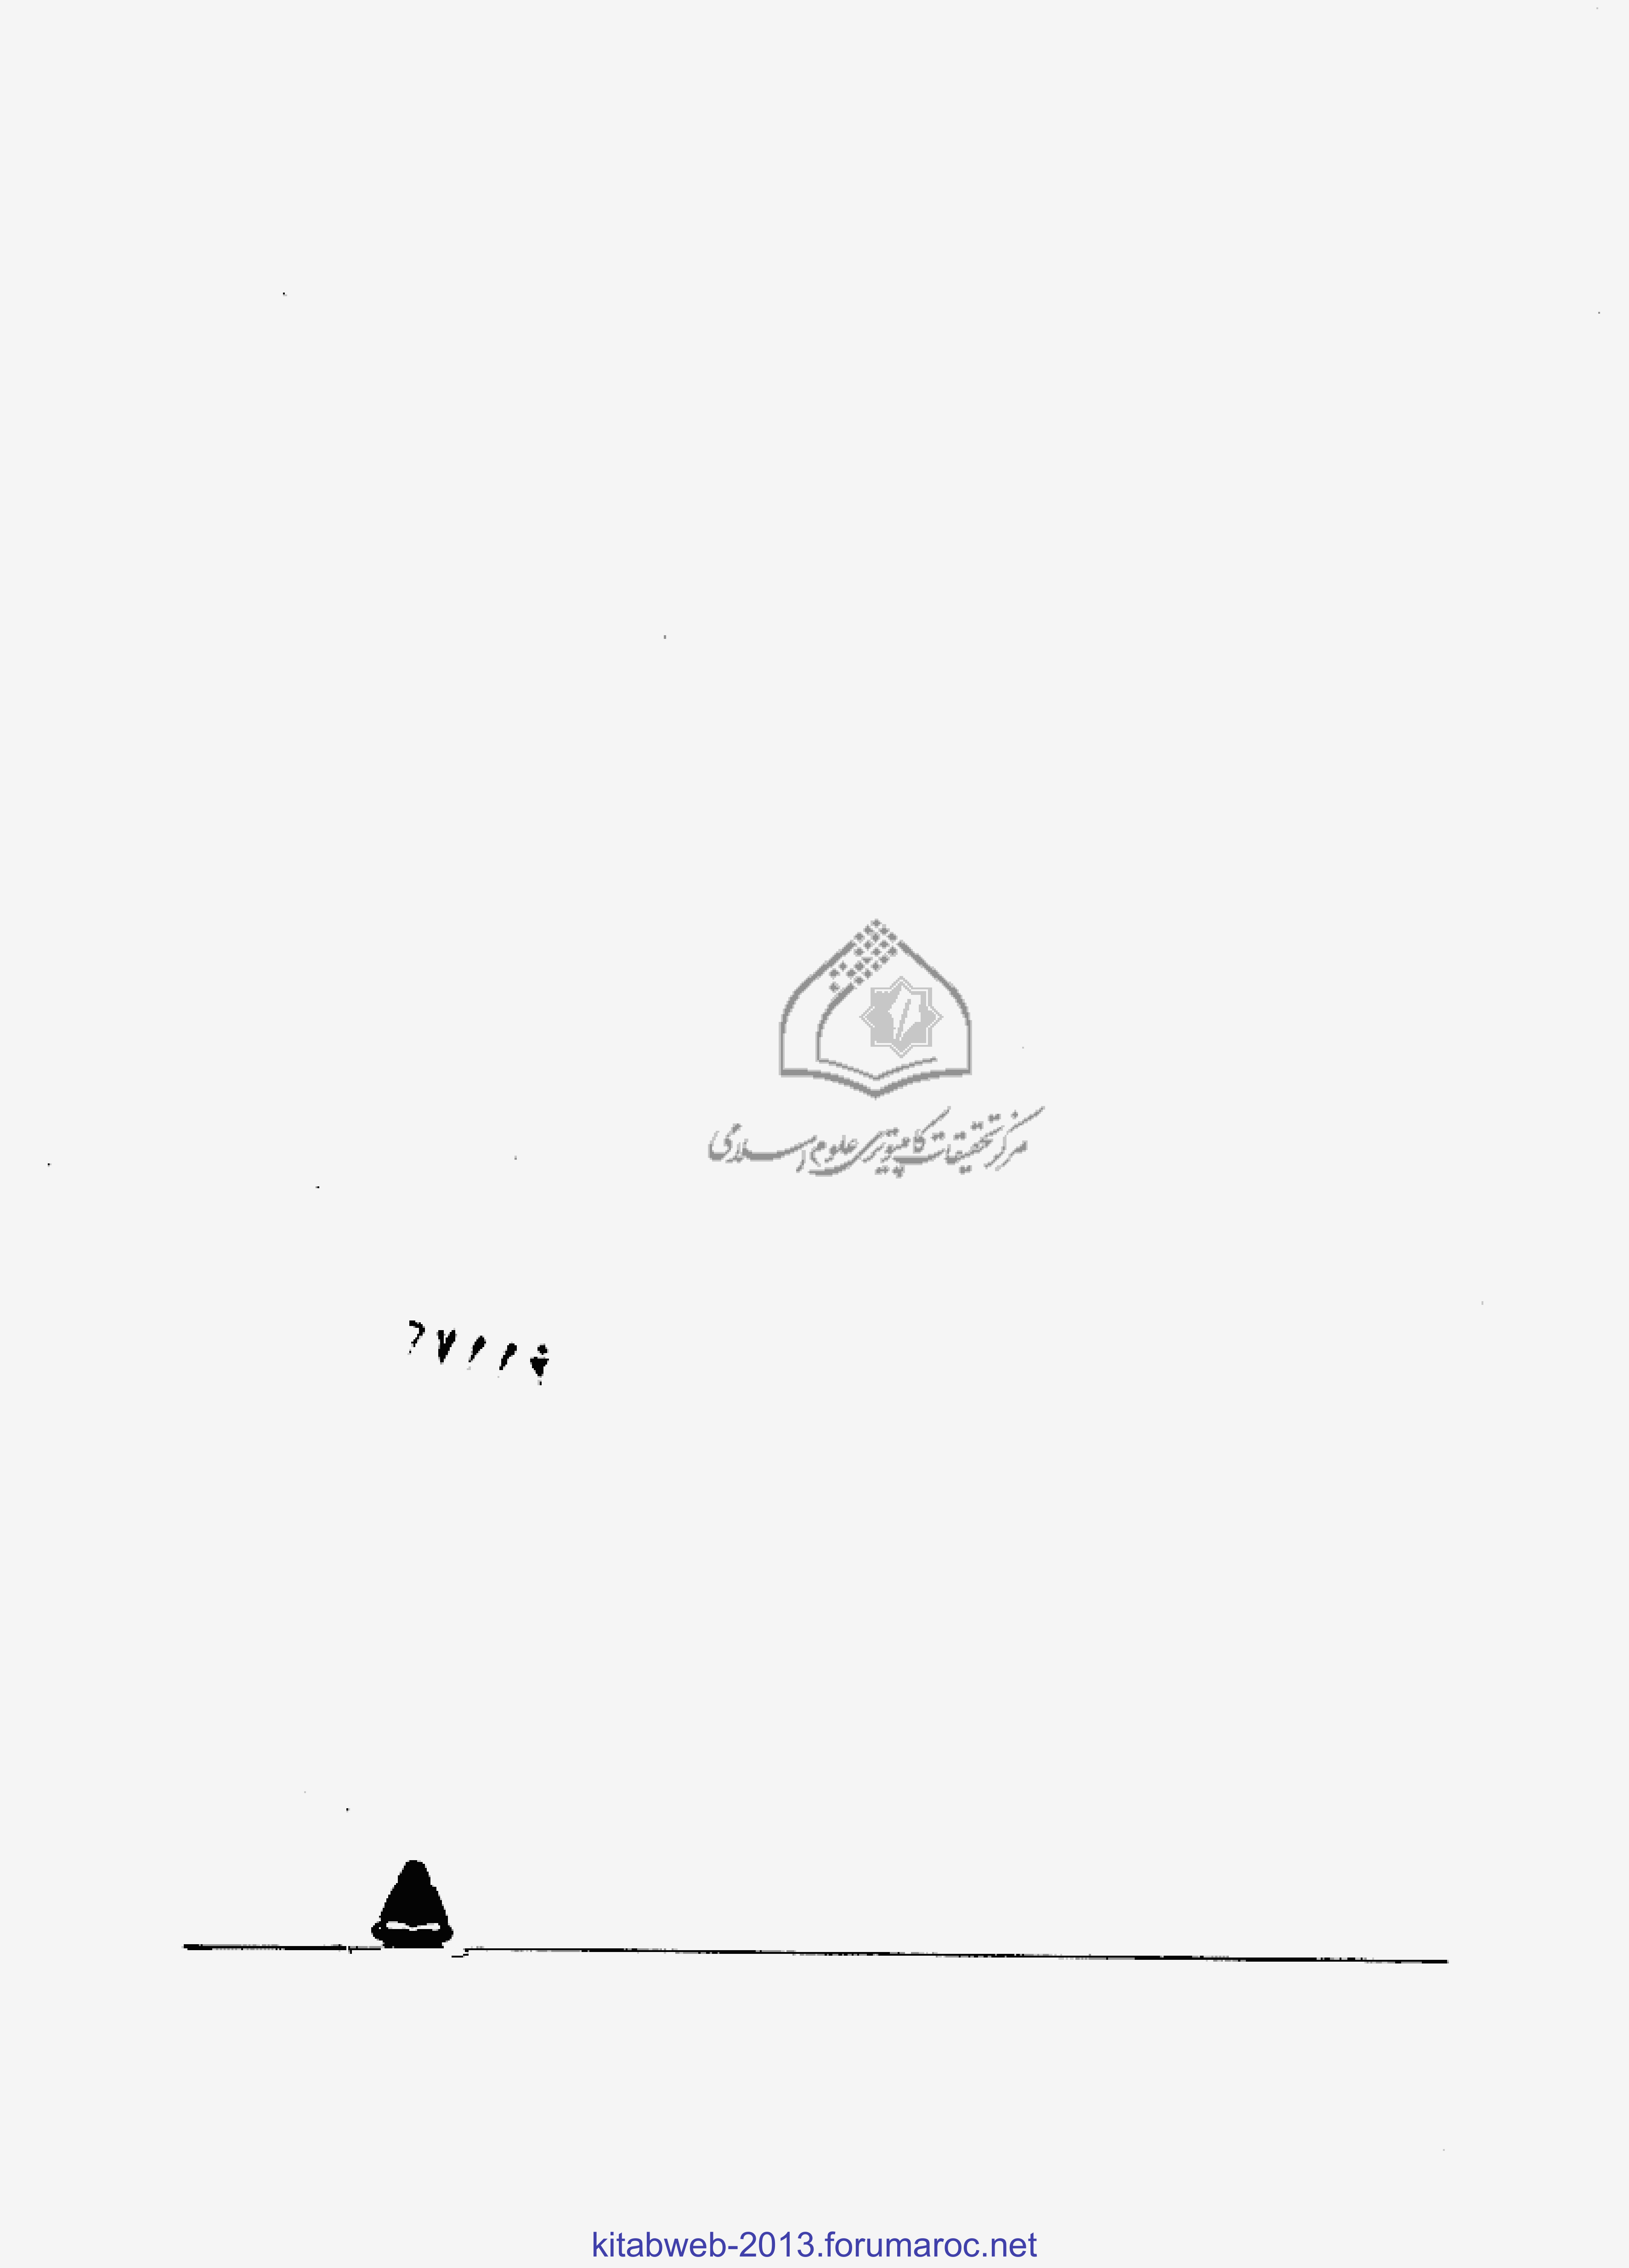 مرکز تحقیقات کامپیوتری علوم اسلامی
kitabweb-2013.forumaroc.net